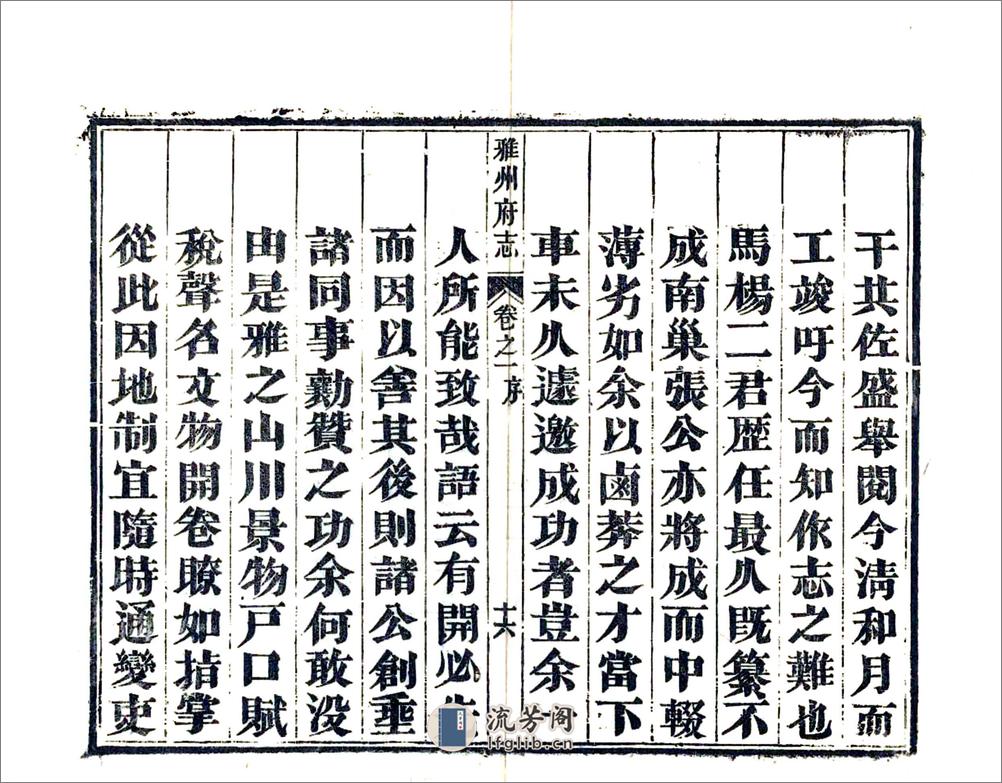 干其佐盛舉閱今淸和月而
工竣吁今而知作志之難也
馬楊二君歷任最久旣纂不
成南巢張公亦將成而中輟
薄劣如余以鹵莽之才當下
車未久遽邀成功者豈余
雅州府志 卷之一 序 十六
人所能致哉語云有開必先
而因以善其後則諸公創垂
諸同事勷贊之功余何敢没
由是雅之山川景物戸口賦
稅聲名文物開卷瞭如指掌
從此因地制宜隨時通變吏
流芳阁
lfglib.cn